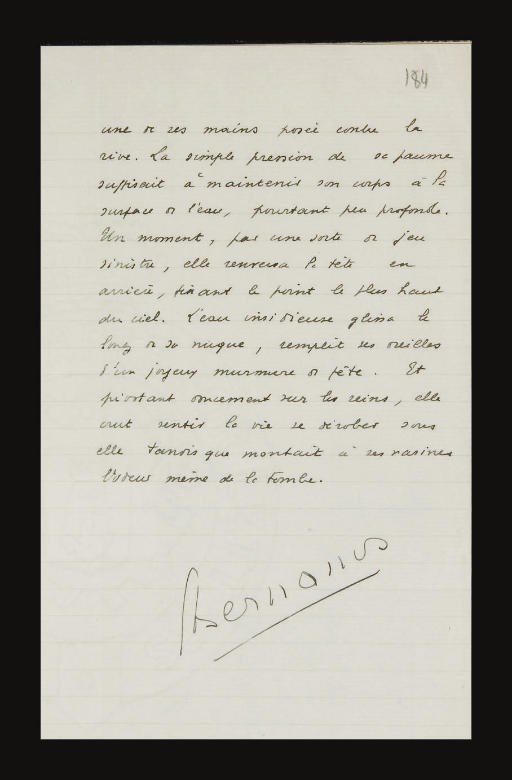 184
une de ses mains posée contre la
rive. La simple pression de sa paume
suffisait à maintenir son corps à la
surface de l'eau, pourtant peu profonde.
Un moment, par une sorte de jeu
sinistre, elle renversa la tête en
arrière, fixant le point le plus haut
du ciel. L'eau insidieuse glissa le
long de sa nuque, remplit ses oreilles
d'un joyeux murmure de fête. Et
pivotant doucement sur les reins, elle
crut sentir la vie se dérober sous
elle tandis que montait à ses narines
l'odeur même de la tombe.
Bernanos